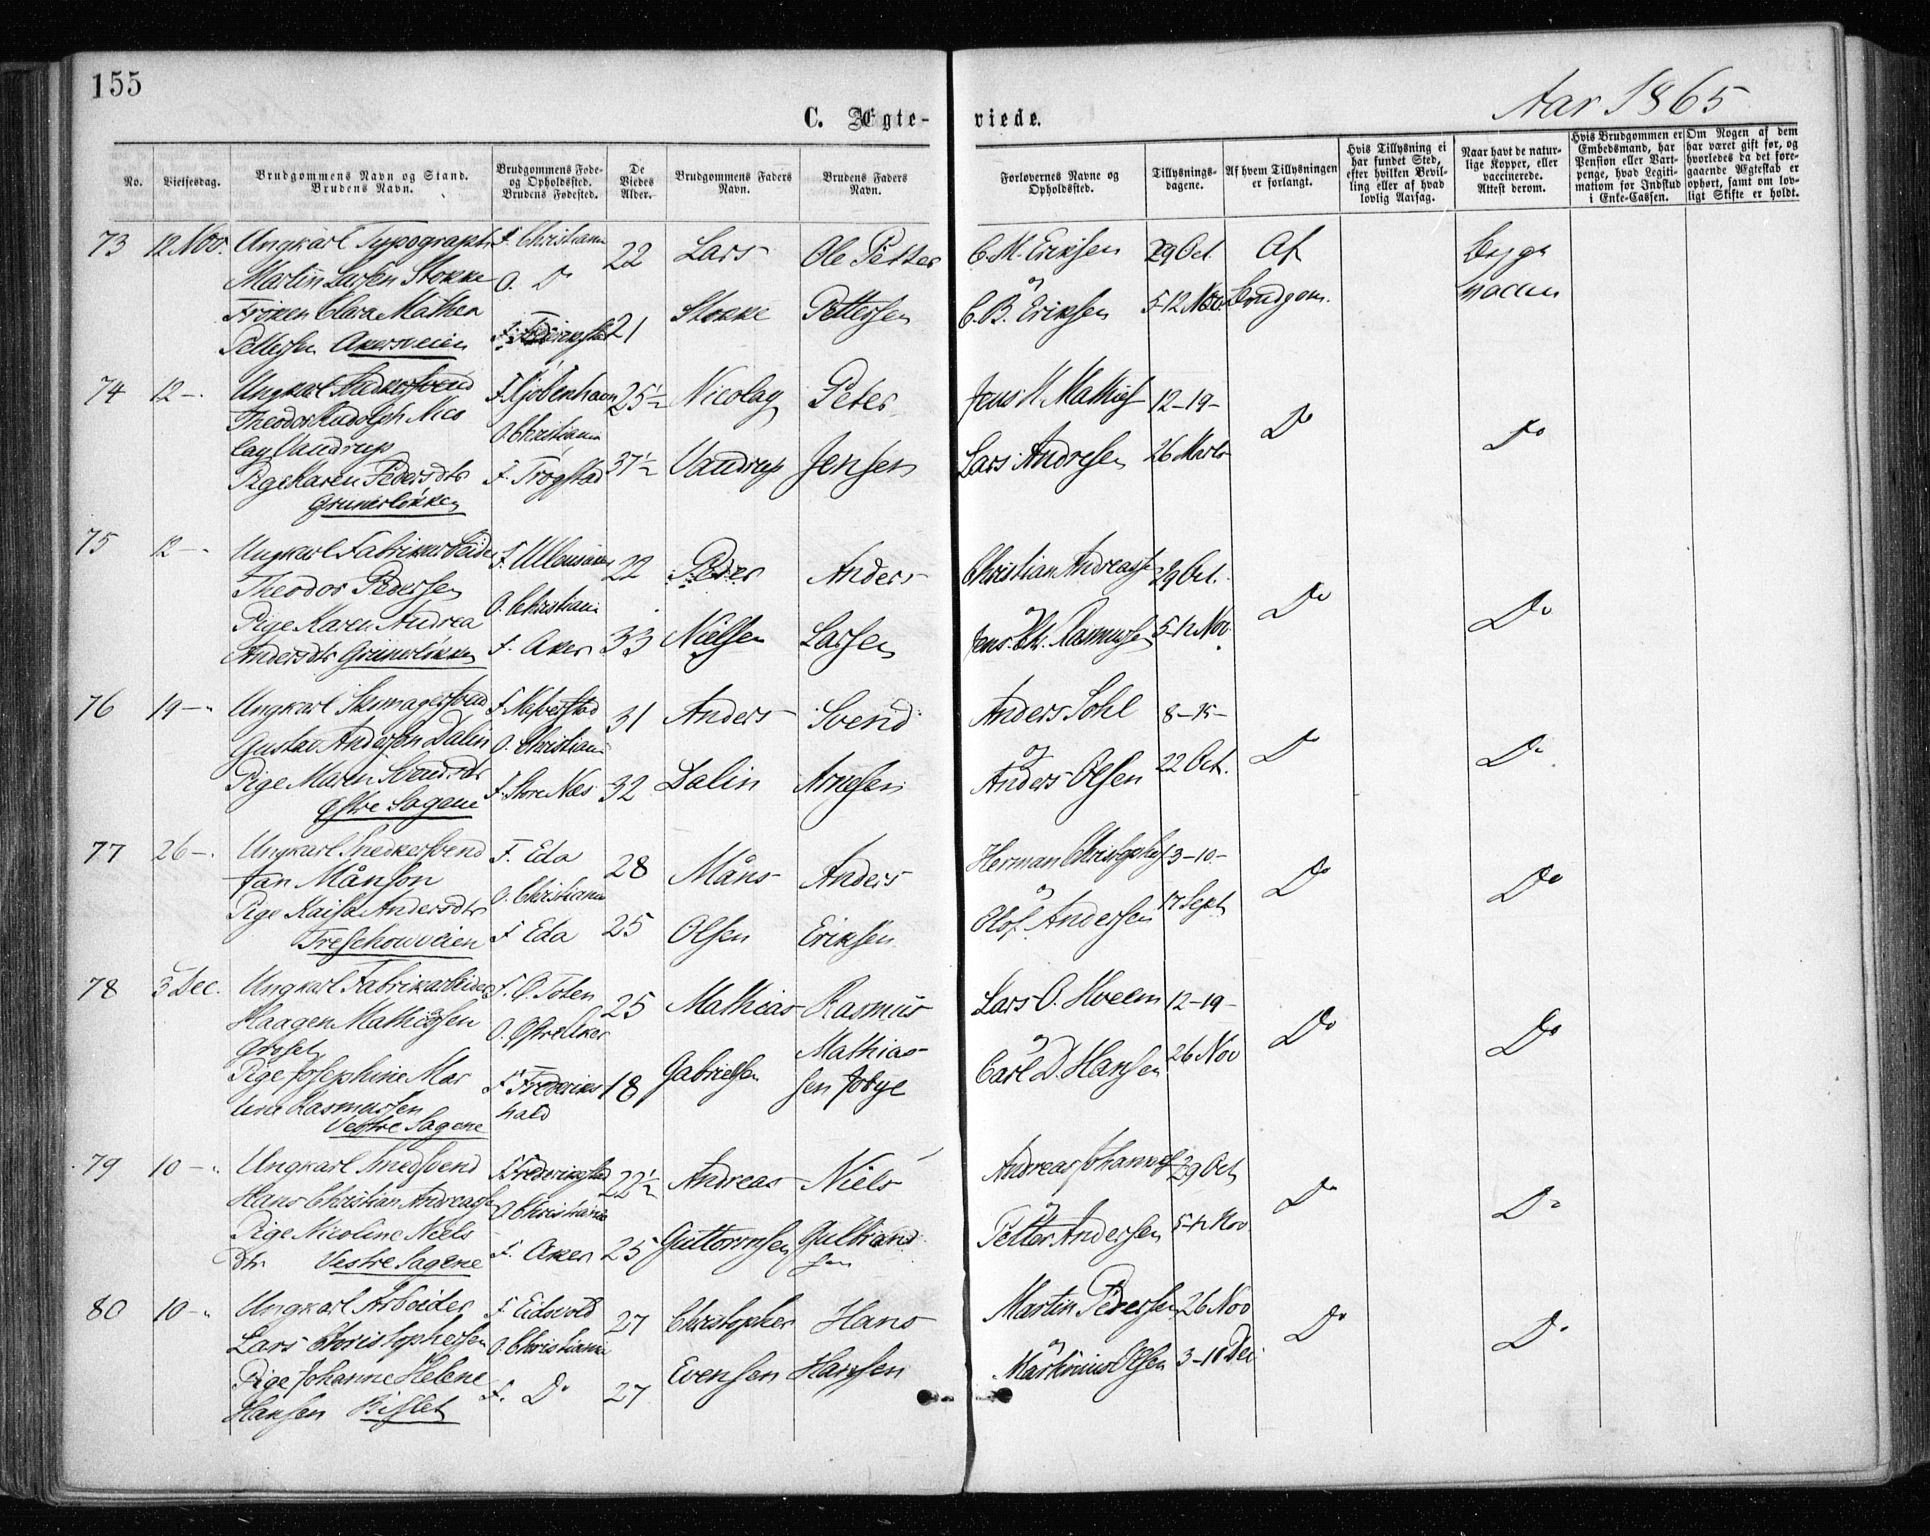 155
Aar 1865
C. Ægte-viede.
No.
Vielsesdag.
Brudgommens Navn og Stand.
Brudens Navn.
Brudgommens Føde-
og Opholdssted.
Brudens Fødested.
De
Viedes
Alder.
Brudgommens Faders
Navn.
Brudens Faders
Navn.
Forlovernes Navne og
Opholdssted.
Tillysnings-
dagene.
Af hvem Tillysningen
er forlangt.
Hvis Tillysning ei
har fundet Sted,
efter hvilken Bevil-
ling eller af hvad
lovlig Aarsag.
Naar havt de natur-
lige Kopper, eller
vaccinerede.
Attest derom.
Hvis Brudgommen er
Embedsmand, har
Pension eller Vart-
penge, hvad Legiti-
mation for Indskud
i Enke-Cassen.
Om Nogen af dem
har været gift før, og
hvorledes da det fore-
gaaende Ægteskab er
ophørt, samt om lov-
ligt Skifte er holdt.
73 12 Nov. Ungkarl Typograph F. Christiania 22 Lars Ole Petter C. M. Eriksen 29 Oct Af Begge
Martin Larsen Stokke O. Do
Frøken Clara Mathea Stokke Pettersen og C. B. Eriksen 5-12 Nov. Brudgom.
Pettersen Akersveien 21
74 12 -. Ungkarl Snedkersvend F. Kjøbenhavn 25½ Nicolay Peter Jens M. Mathis 12-19-
Theodor Rudolph Nico O. Christiania Do Do
lay Vandrup
Pige Karen Pedersdtr F. Trøgstad 37½ Vandrup Jensen Lars Andresen 26 Marts
Grünerløkken
75 12 -. Ungkarl Fabrikarbeider F. Ullensaker 22 Peder Anders Christian Andreasse 29 Oct.
Theodor Pedersen O. Christiania Do Do
Pige Karen Andrea og
Andersdtr Grünerløkken F. Aker 33 Nielsen Larsen Jens Chr. Rasmussen 5-12 Nov.
76 19 -. Ungkarl Skomagersvend F. Næverstad 31 Anders Svend Anders Sohl 8-15-
Gustav Andersen Dalin O. Christiania og Do Do
Pige Maren Svendsdtr F. Store Næs 32 Dalin Arnesen Anders Olsen 22 Oct.
Østre Sagene
77 26 -. Ungkarl Snedkersvend F. Eda 28 Måns Anders Herman Christophs 3-10-
Jan Månson O. Christiania og Do Do
Pige Kaisa Andersdtr F. Eda 25 Olsen Eriksen Olof Andersen 17 Sept
Treschowveien
78 3 Dec. Ungkarl Fabrikarbeider F. Ø. Toten 25 Mathias Rasmus Lars O. Hveem 12-19-
Haagen Mathiassen O. Østre Aker Mathias- og Do Do
Grøset
Pige Josephine Mar F. Frederiks 18 Gabrielsen sen Jobye Carl D. Hansen 26 Nov
tine Rasmussen hald
Vestre Sagene
79 10 -. Ungkarl Smedsvend F. Frederikstad 22½ Andreas Niels Andreas Johannes 29 Oct
Hans Christian Andreassen O. Christiania og Do Do
Pige Nicoline Niels
dtr. Vestre Sagene F. Aker 25 Guttormsen Gulbrand Petter Andersen 5-12 Nov.
sen
80 10 -. Ungkarl Arbeider F. Eidsvold 27 Christopher Hans Martin Pedersen 26 Nov
Lars Christophersen O. Christiania og Do Do
Pige Johanne Helene F. Do 27 Evensen Hansen Markenius Olsen 3-10 Dec.
Hansen Bislet